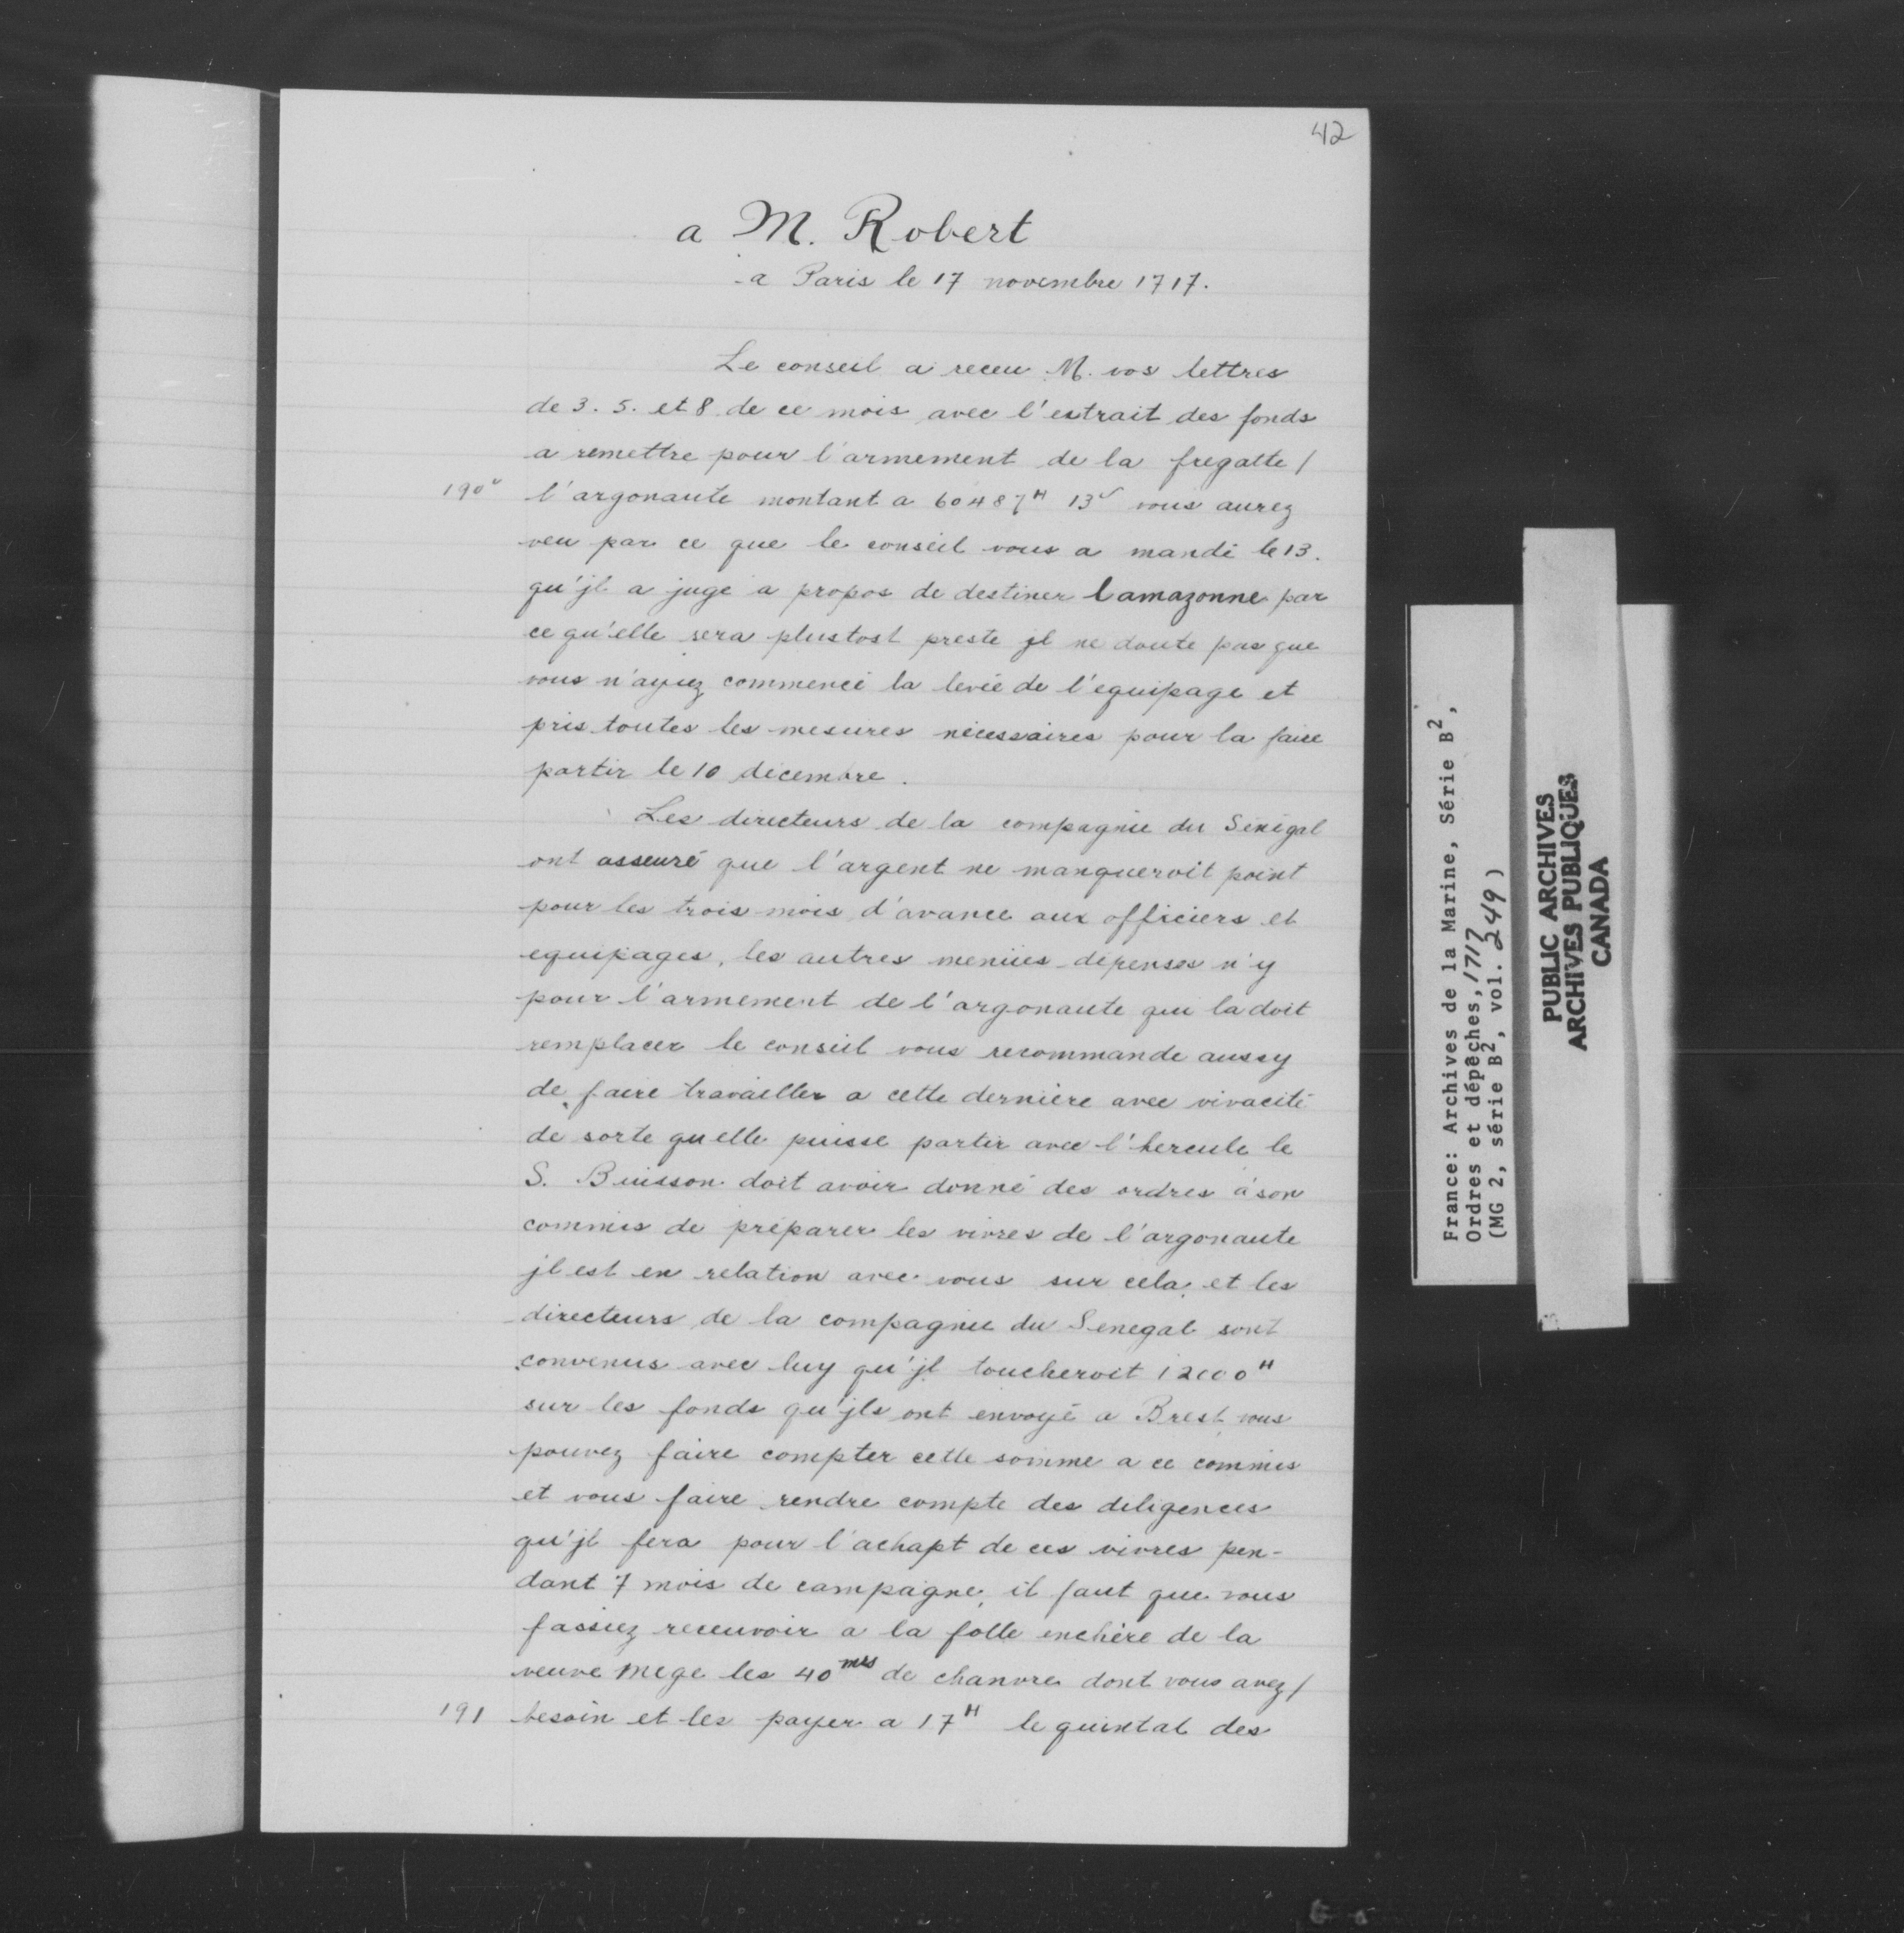 42
a M. Robert
a Paris le 17 novembre 1717.
Le conseil a receu M. vos lettres
de 3. 5. et 8 de ce mois avec l'extrait des fonds
a remettre pour l'armement de la fregatte /
190v l'argonaute montant a 60487H 13s vous aurez
veu par ce que le conseil vous a mandé le 13.
qu'jl a jugé a propos de destiner lamazonne par
ce qu'elle sera plustost preste jl ne doute pas que
vous n'ayiez commencé la levée de l'equipage et
pris toutes les mesures nécessaires pour la faire
partir le 10 décembre.
Les directeurs de la compagnie du Sénégal
ont asseuré que l'argent ne manqueroit point
pour les trois mois d'avance aux officiers et
equipages, les autres menües dépenses n'y
pour l'armement de l'argonaute qui la doit
remplacer le conseil vous recommande aussy
de faire travailler a cette dernière avec vivacité
de sorte quelle puisse partir avec l'hercule le
S. Buisson doit avoir donné des ordres à son
commis de préparer les vivres de l'argonaute
jl est en relation avec vous sur cela et les
directeurs de la compagnie du Senegal sont
convenus avec luy qu'jl toucheroit 12000H
sur les fonds qu'jls ont envoyé a Brest, vous
pouvez faire compter cette somme a ce commis
et vous faire rendre compte des diligences
qu'jl fera pour l'achapt de ces vivres pen-
dant 7 mois de campagne, il faut que vous
fassiez recevoir a la folle enchère de la
veuve Mege les 40mes de chanvre dont vous avez /
191 besoin et les payer a 17H le quintal des
France: Archives de la Marine, Série B2,
Ordres et dépêches, 1717
(MG 2, série B2, vol. 249)
PUBLIC ARCHIVES
ARCHIVES PUBLIQUES
CANADA